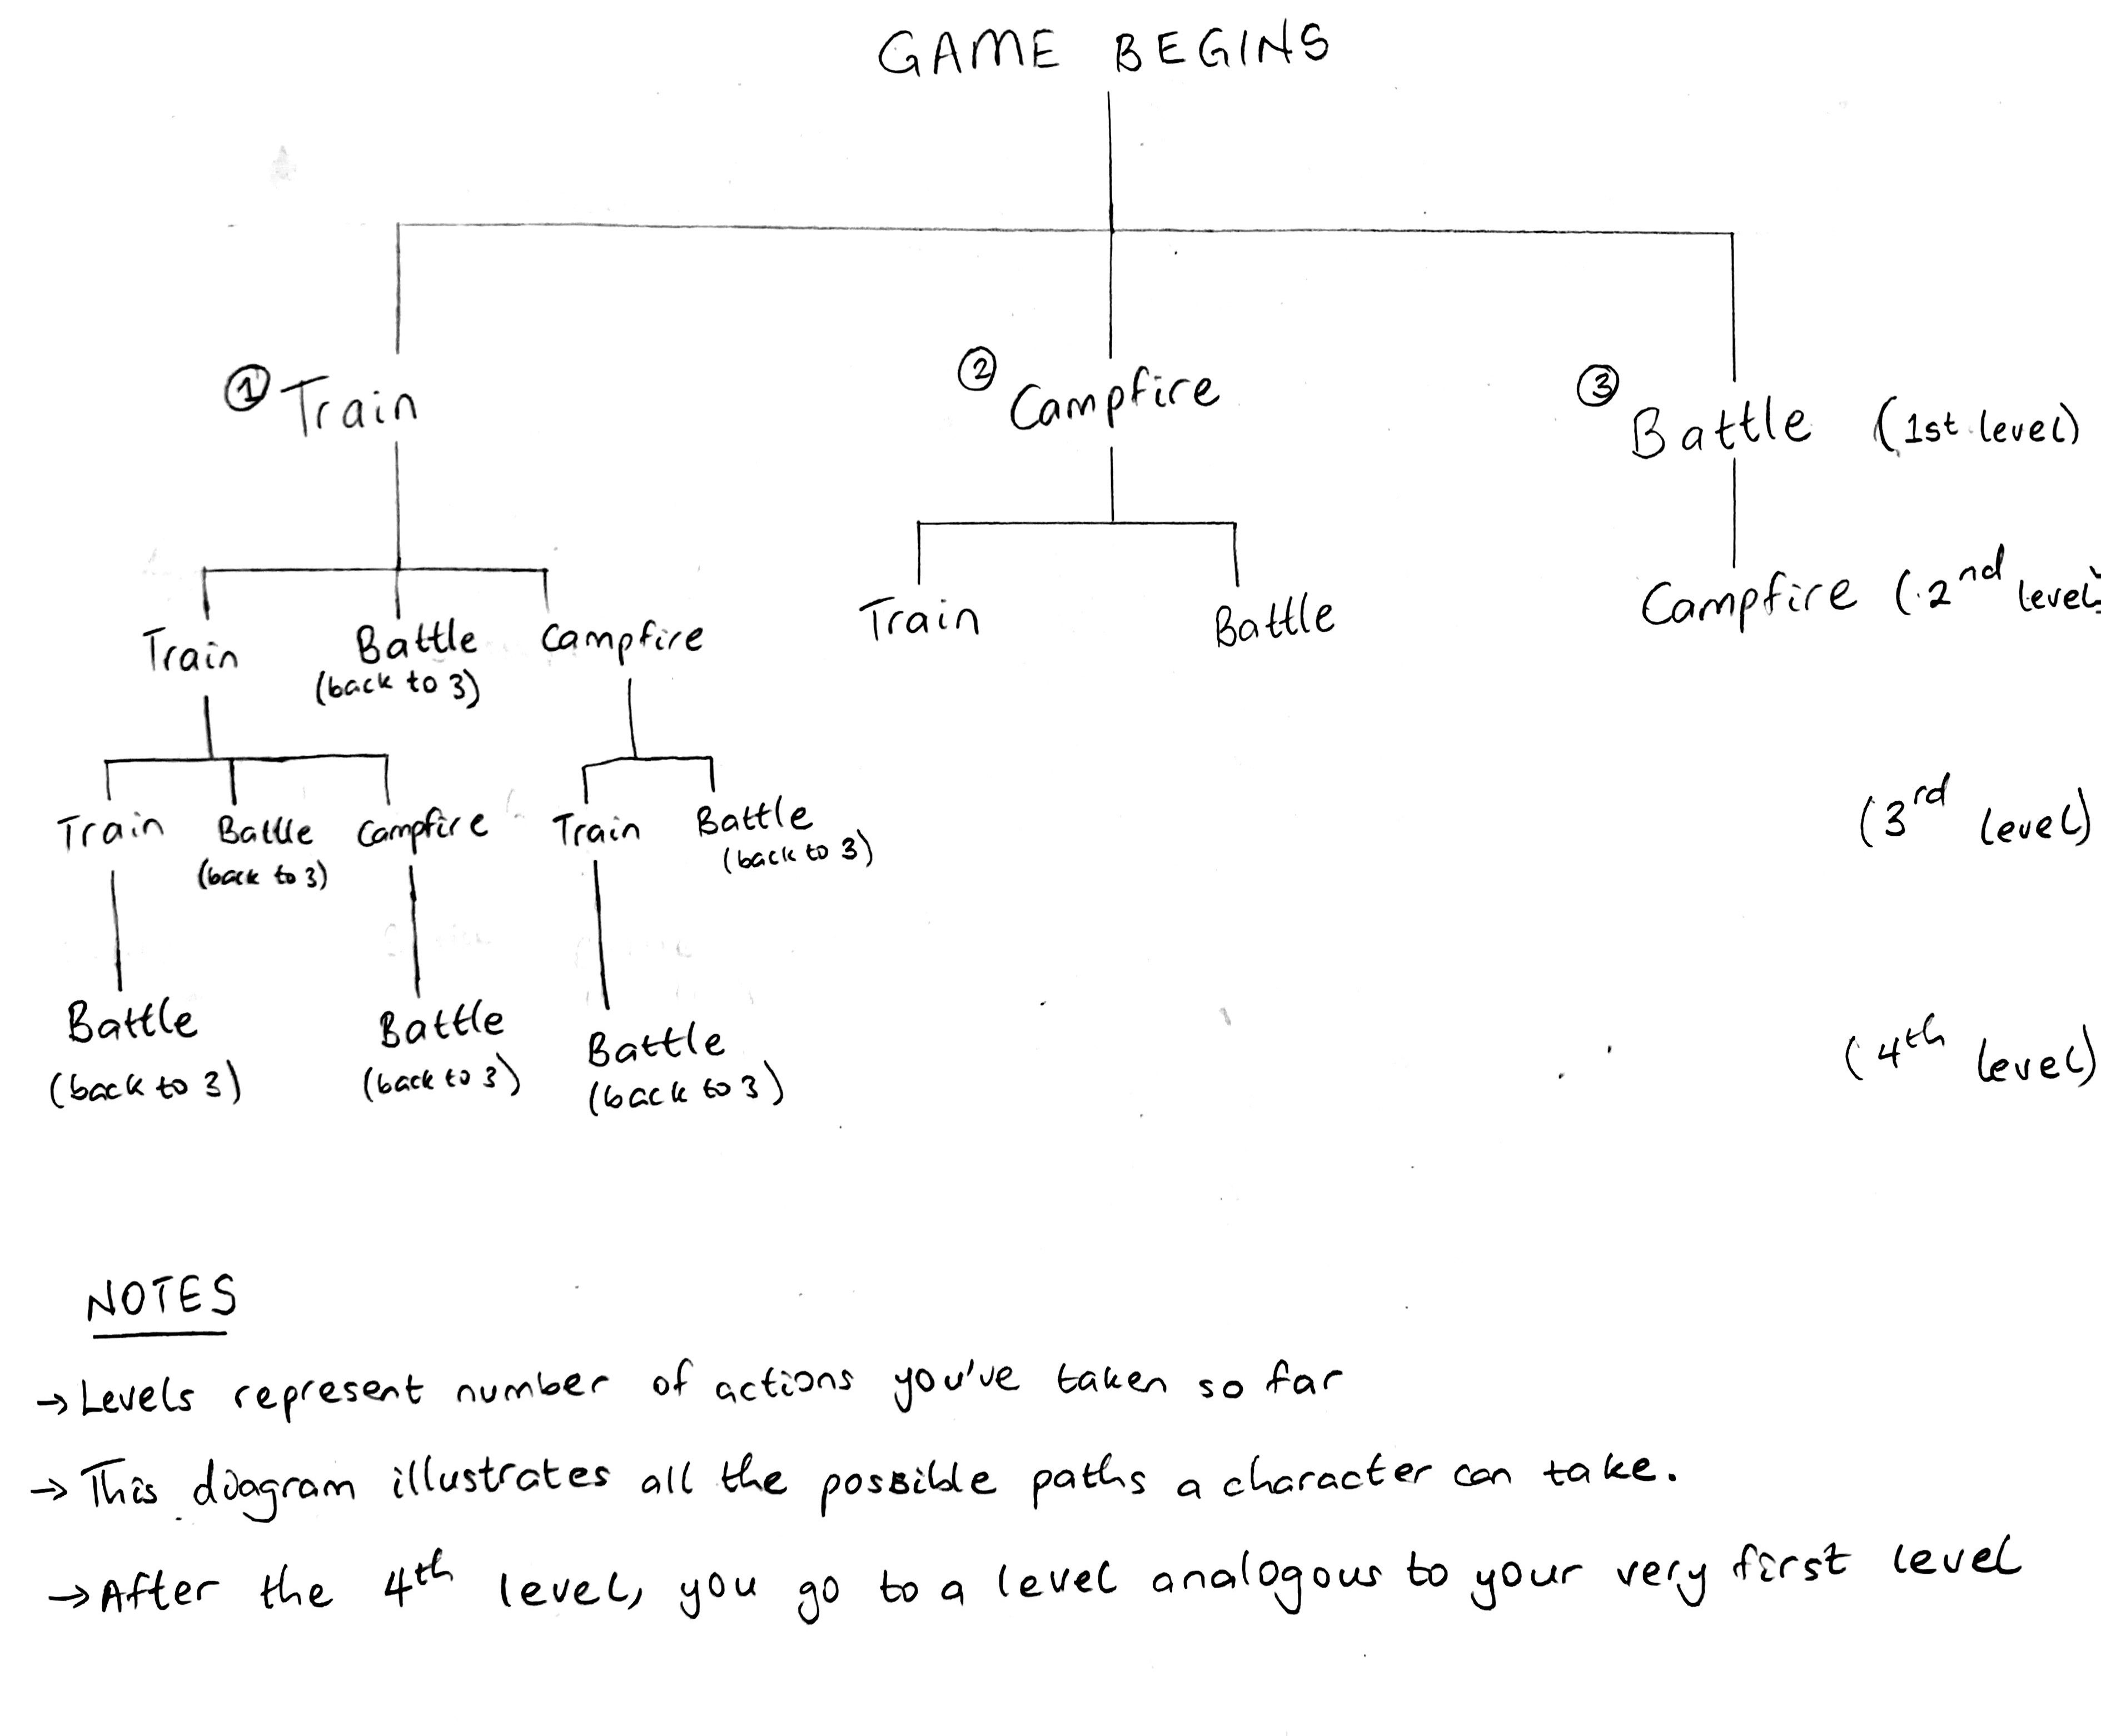 GAME BEGINS
① Train
② Campfire
③ Battle (1st level)
Train Battle Campfire
(back to 3)
Train Battle
Campfire (2nd level)
Train Battle Campfire Train Battle
(back to 3) (back to 3)
(3rd level)
Battle Battle Battle
(back to 3) (back to 3) (back to 3)
(4th level)
NOTES
→ Levels represent number of actions you've taken so far
→ This diagram illustrates all the possible paths a character can take.
→ After the 4th level, you go to a level analogous to your very first level